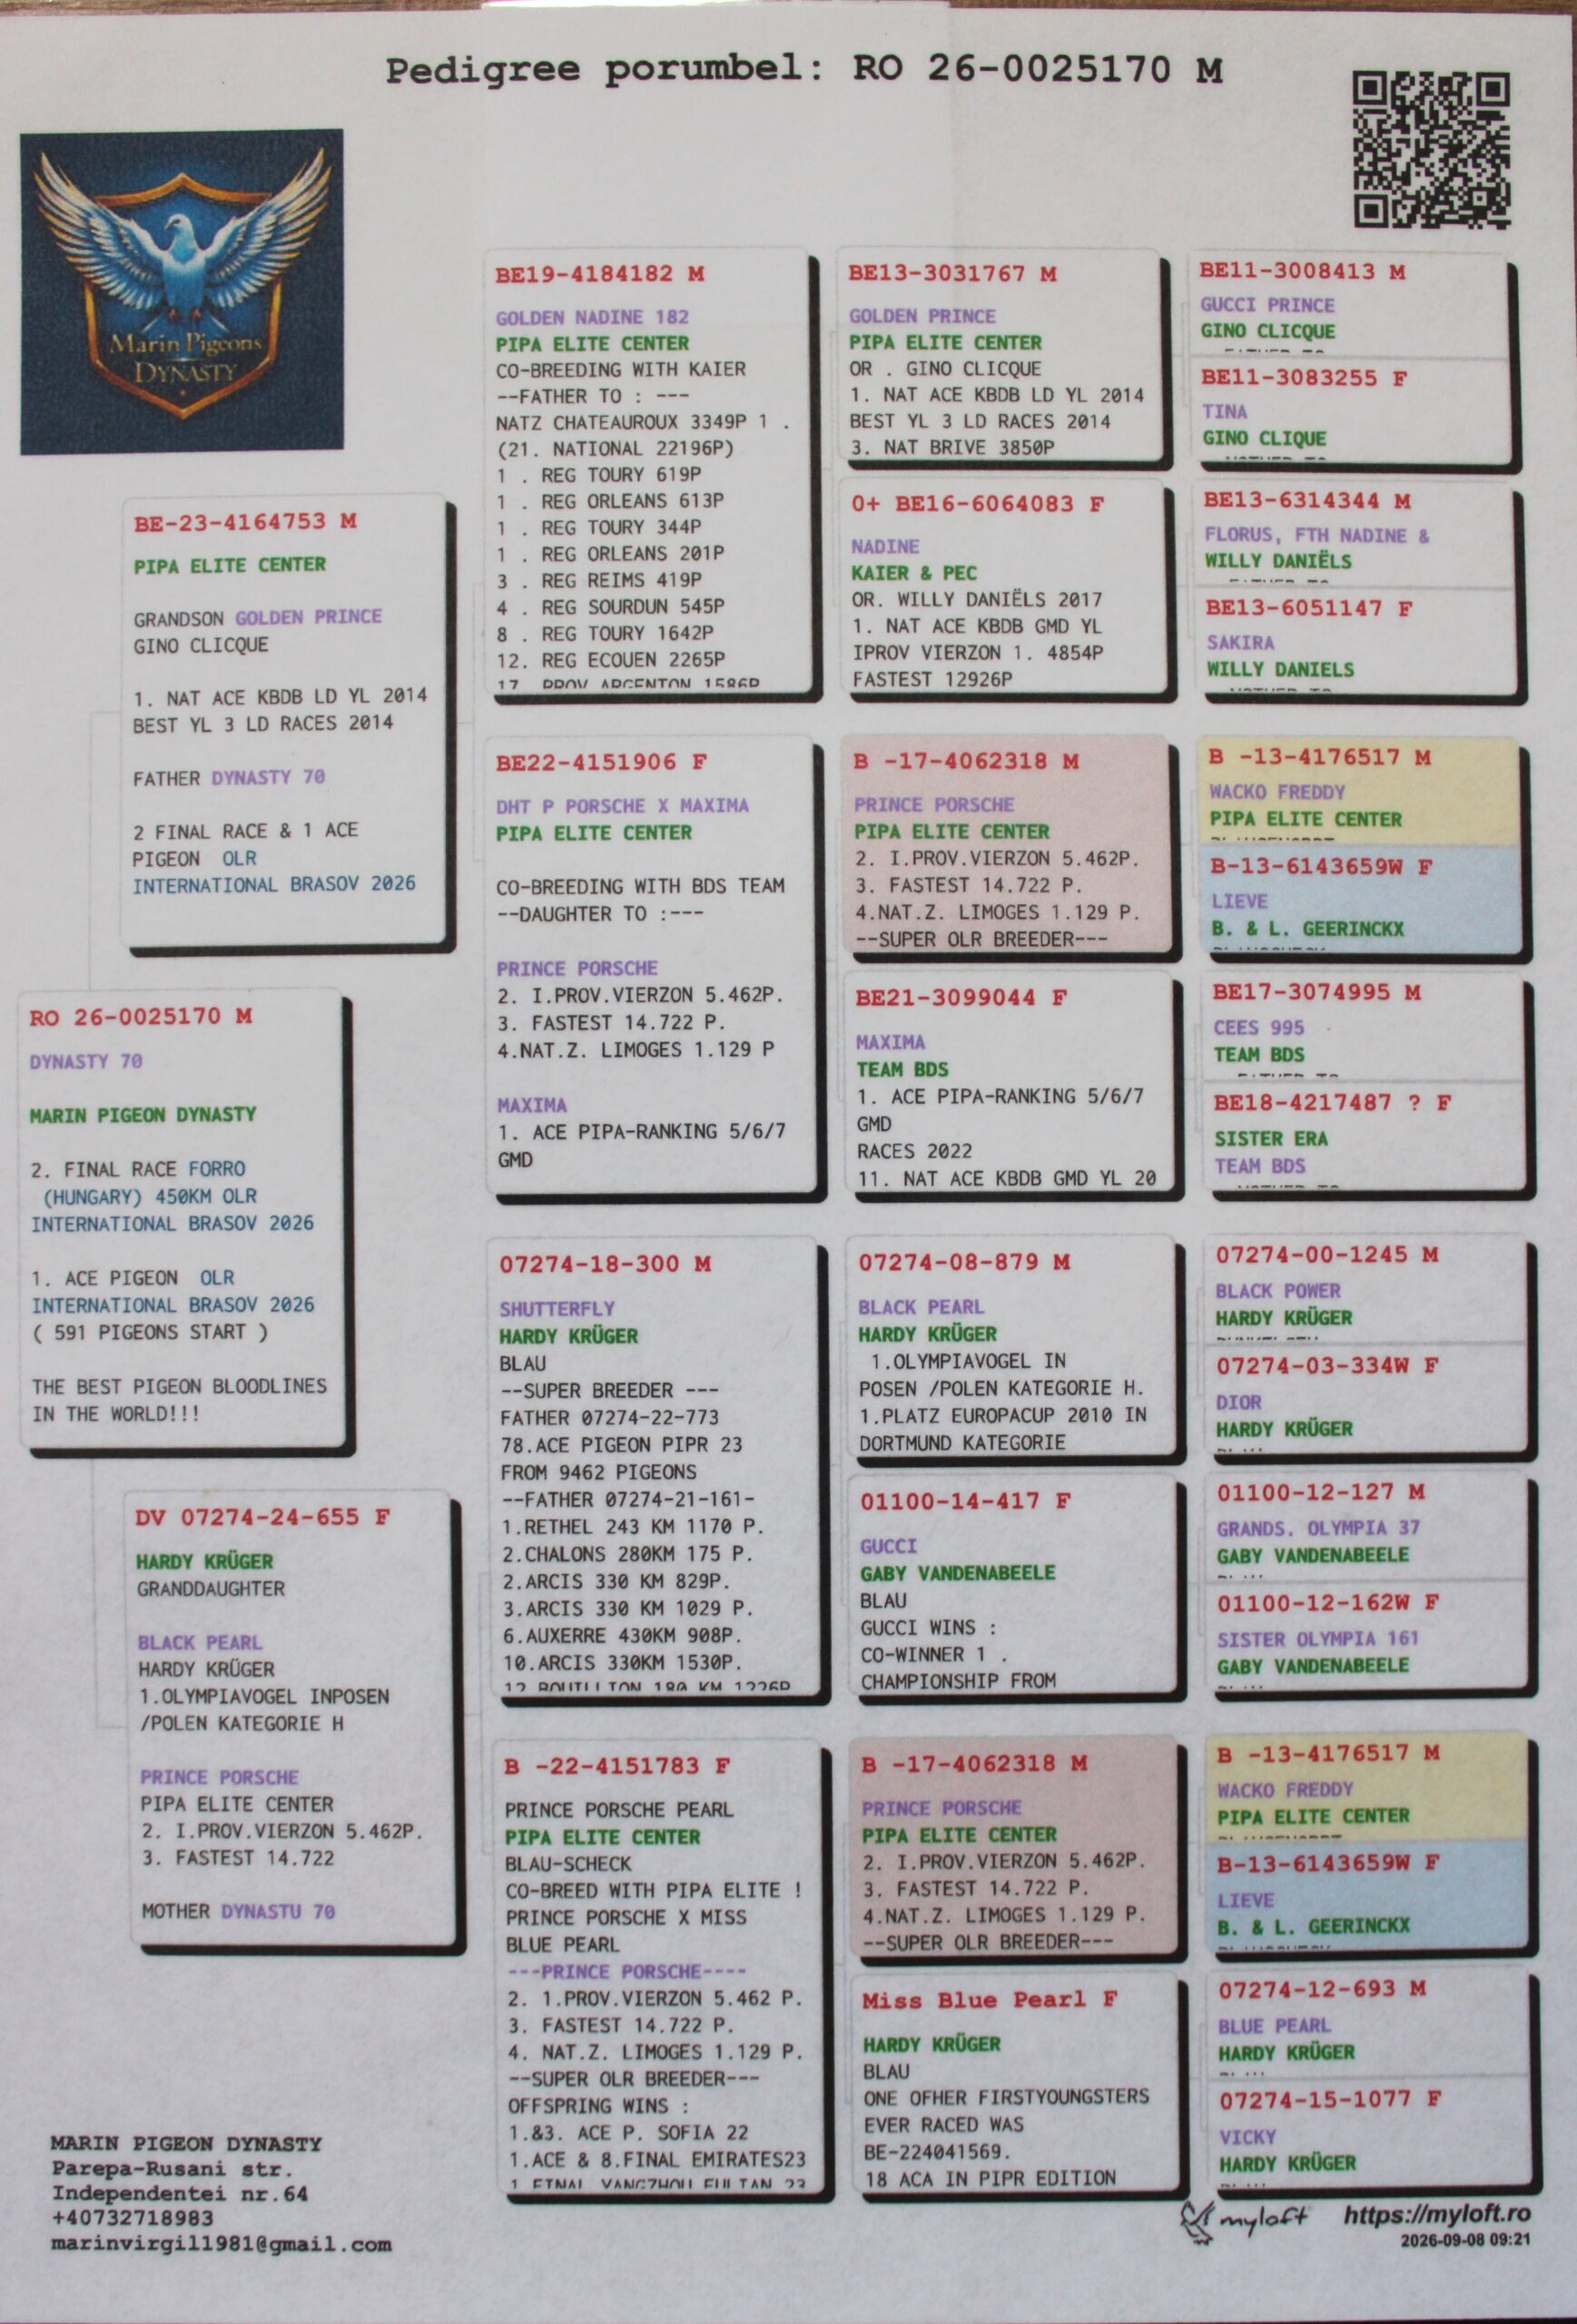 Pedigree porumbel: RO 26-0025170 M
Marin Pigeons
DYNASTY
BE-23-4164753 M
PIPA ELITE CENTER
GRANDSON GOLDEN PRINCE
GINO CLICQUE
1. NAT ACE KBDB LD YL 2014
BEST YL 3 LD RACES 2014
FATHER DYNASTY 70
2 FINAL RACE & 1 ACE
PIGEON OLR
INTERNATIONAL BRASOV 2026
RO 26-0025170 M
DYNASTY 70
MARIN PIGEON DYNASTY
2. FINAL RACE FORRO
(HUNGARY) 450KM OLR
INTERNATIONAL BRASOV 2026
1. ACE PIGEON OLR
INTERNATIONAL BRASOV 2026
( 591 PIGEONS START )
THE BEST PIGEON BLOODLINES
IN THE WORLD!!!
DV 07274-24-655 F
HARDY KRÜGER
GRANDDAUGHTER
BLACK PEARL
HARDY KRÜGER
1.OLYMPIAVOGEL INPOSEN
/POLEN KATEGORIE H
PRINCE PORSCHE
PIPA ELITE CENTER
2. I.PROV.VIERZON 5.462P.
3. FASTEST 14.722
MOTHER DYNASTU 70
BE19-4184182 M
GOLDEN NADINE 182
PIPA ELITE CENTER
CO-BREEDING WITH KAIER
--FATHER TO : ---
NATZ CHATEAUROUX 3349P 1 .
(21. NATIONAL 22196P)
1 . REG TOURY 619P
1 . REG ORLEANS 613P
1 . REG TOURY 344P
1 . REG ORLEANS 201P
3 . REG REIMS 419P
4 . REG SOURDUN 545P
8 . REG TOURY 1642P
12. REG ECOUEN 2265P
17. PROV ARGENTON 1586P
BE22-4151906 F
DHT P PORSCHE X MAXIMA
PIPA ELITE CENTER
CO-BREEDING WITH BDS TEAM
--DAUGHTER TO :---
PRINCE PORSCHE
2. I.PROV.VIERZON 5.462P.
3. FASTEST 14.722 P.
4.NAT.Z. LIMOGES 1.129 P
MAXIMA
1. ACE PIPA-RANKING 5/6/7
GMD
07274-18-300 M
SHUTTERFLY
HARDY KRÜGER
BLAU
--SUPER BREEDER ---
FATHER 07274-22-773
78.ACE PIGEON PIPR 23
FROM 9462 PIGEONS
--FATHER 07274-21-161-
1.RETHEL 243 KM 1170 P.
2.CHALONS 280KM 175 P.
2.ARCIS 330 KM 829P.
3.ARCIS 330 KM 1029 P.
6.AUXERRE 430KM 908P.
10.ARCIS 330KM 1530P.
12.BOUILLION 180 KM 1226P
B -22-4151783 F
PRINCE PORSCHE PEARL
PIPA ELITE CENTER
BLAU-SCHECK
CO-BREED WITH PIPA ELITE !
PRINCE PORSCHE X MISS
BLUE PEARL
---PRINCE PORSCHE----
2. 1.PROV.VIERZON 5.462 P.
3. FASTEST 14.722 P.
4. NAT.Z. LIMOGES 1.129 P.
--SUPER OLR BREEDER---
OFFSPRING WINS :
1.&3. ACE P. SOFIA 22
1.ACE & 8.FINAL EMIRATES23
1.FINAL YANGZHOU FULIAN 23
BE13-3031767 M
GOLDEN PRINCE
PIPA ELITE CENTER
OR . GINO CLICQUE
1. NAT ACE KBDB LD YL 2014
BEST YL 3 LD RACES 2014
3. NAT BRIVE 3850P
0+ BE16-6064083 F
NADINE
KAIER & PEC
OR. WILLY DANIËLS 2017
1. NAT ACE KBDB GMD YL
IPROV VIERZON 1. 4854P
FASTEST 12926P
B -17-4062318 M
PRINCE PORSCHE
PIPA ELITE CENTER
2. I.PROV.VIERZON 5.462P.
3. FASTEST 14.722 P.
4.NAT.Z. LIMOGES 1.129 P.
--SUPER OLR BREEDER---
BE21-3099044 F
MAXIMA
TEAM BDS
1. ACE PIPA-RANKING 5/6/7
GMD
RACES 2022
11. NAT ACE KBDB GMD YL 20
07274-08-879 M
BLACK PEARL
HARDY KRÜGER
1.OLYMPIAVOGEL IN
POSEN /POLEN KATEGORIE H.
1.PLATZ EUROPACUP 2010 IN
DORTMUND KATEGORIE
01100-14-417 F
GUCCI
GABY VANDENABEELE
BLAU
GUCCI WINS :
CO-WINNER 1 .
CHAMPIONSHIP FROM
B -17-4062318 M
PRINCE PORSCHE
PIPA ELITE CENTER
2. I.PROV.VIERZON 5.462P.
3. FASTEST 14.722 P.
4.NAT.Z. LIMOGES 1.129 P.
--SUPER OLR BREEDER---
Miss Blue Pearl F
HARDY KRÜGER
BLAU
ONE OFHER FIRSTYOUNGSTERS
EVER RACED WAS
BE-224041569.
18 ACA IN PIPR EDITION
BE11-3008413 M
GUCCI PRINCE
GINO CLICQUE
BE11-3083255 F
TINA
GINO CLIQUE
BE13-6314344 M
FLORUS, FTH NADINE &
WILLY DANIËLS
BE13-6051147 F
SAKIRA
WILLY DANIELS
B -13-4176517 M
WACKO FREDDY
PIPA ELITE CENTER
B-13-6143659W F
LIEVE
B. & L. GEERINCKX
BE17-3074995 M
CEES 995
TEAM BDS
BE18-4217487 ? F
SISTER ERA
TEAM BDS
07274-00-1245 M
BLACK POWER
HARDY KRÜGER
07274-03-334W F
DIOR
HARDY KRÜGER
01100-12-127 M
GRANDS. OLYMPIA 37
GABY VANDENABEELE
01100-12-162W F
SISTER OLYMPIA 161
GABY VANDENABEELE
B -13-4176517 M
WACKO FREDDY
PIPA ELITE CENTER
B-13-6143659W F
LIEVE
B. & L. GEERINCKX
07274-12-693 M
BLUE PEARL
HARDY KRÜGER
07274-15-1077 F
VICKY
HARDY KRÜGER
MARIN PIGEON DYNASTY
Parepa-Rusani str.
Independentei nr.64
+40732718983
marinvirgil1981@gmail.com
myloft https://myloft.ro
2026-09-08 09:21